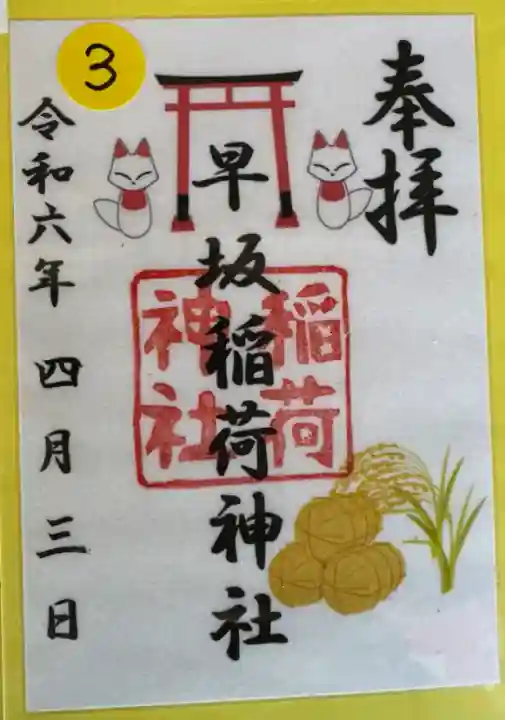 3
奉拝
早坂稲荷神社
稲荷
神社
令和六年 四月三日